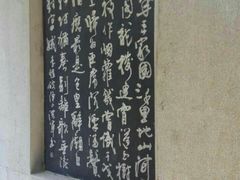 年来家國三千里地山河
閣龍樓連霄漢玉樹
枝作烟蘿幾曾識干戈
旦歸為臣虜沈腰潘鬢
磨最是倉皇辭廟日
坊猶奏别離歌垂淚
宮娥